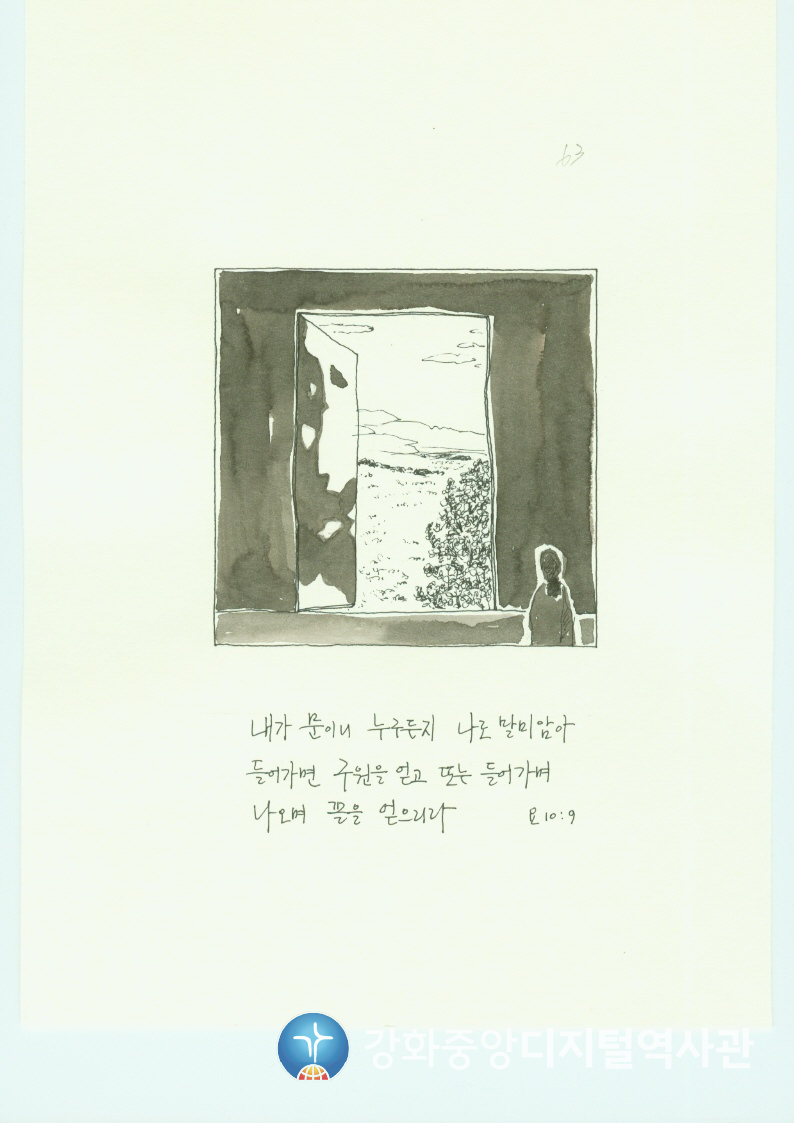 63
내가 문이니 누구든지 나로 말미암아
들어가면 구원을 얻고 또는 들어가며
나오며 꼴을 얻으리라 요 10:9
강화중앙디지털역사관